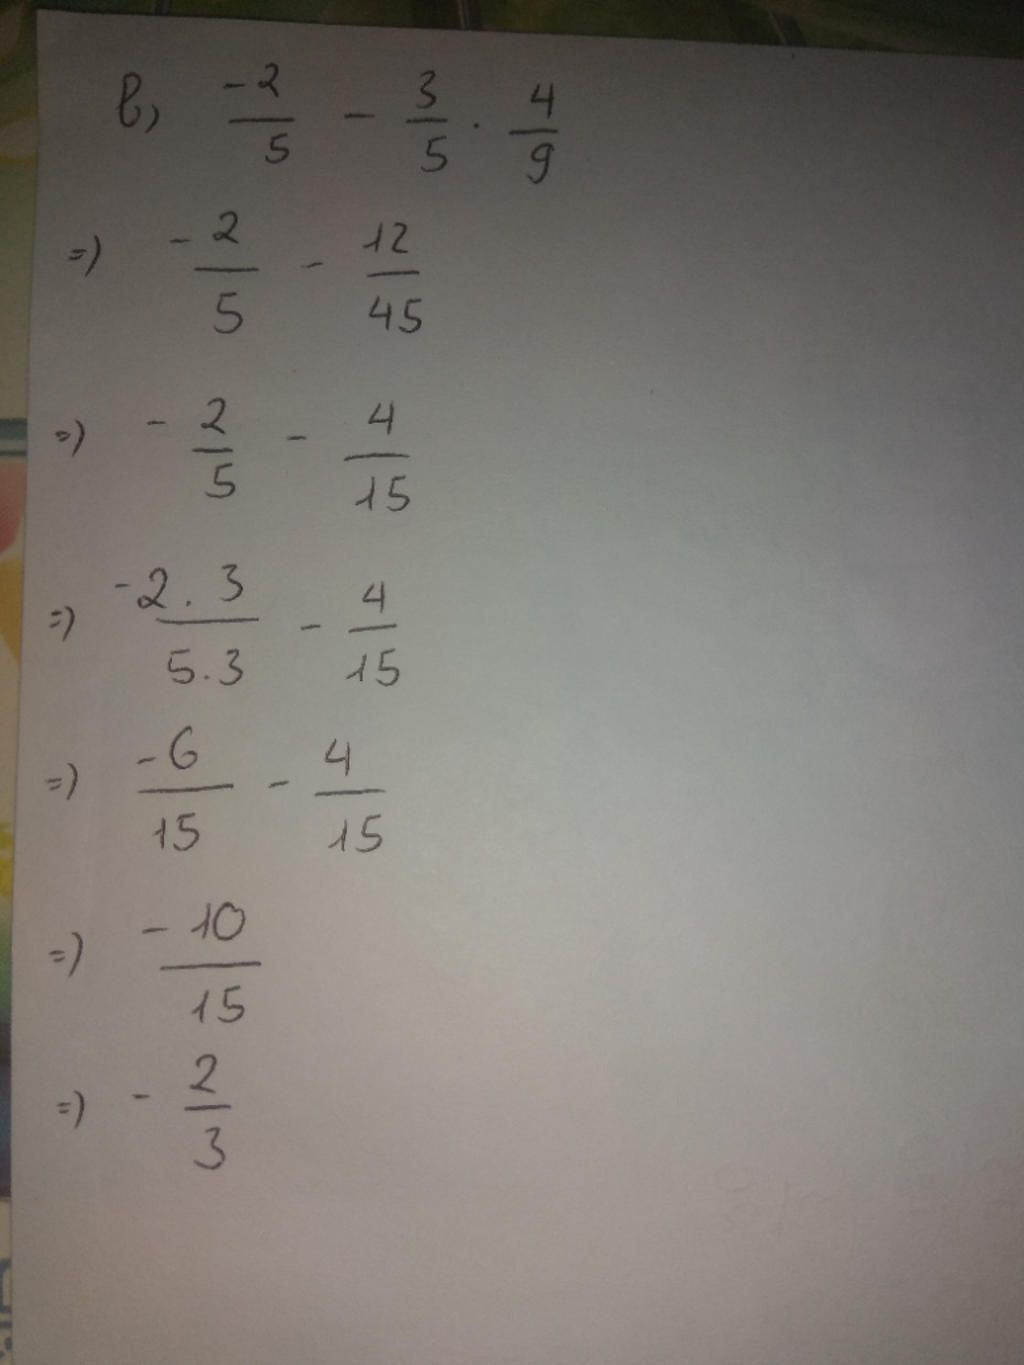 b, -2/5 - 3/5 · 4/9
=) -2/5 - 12/45
=) -2/5 - 4/15
=) -2.3/5.3 - 4/15
=) -6/15 - 4/15
=) -10/15
=) -2/3